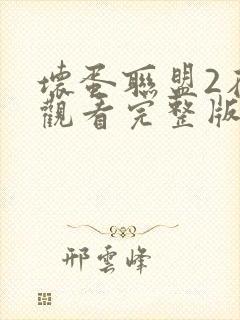 壞蛋聯盟2
觀看完整版
邢雲峰